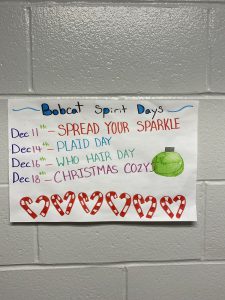 Bobcat Spirit Days
Dec 11th - SPREAD YOUR SPARKLE
Dec 14th - PLAID DAY
Dec 16th - WHO HAIR DAY
Dec 18th - CHRISTMAS COZY